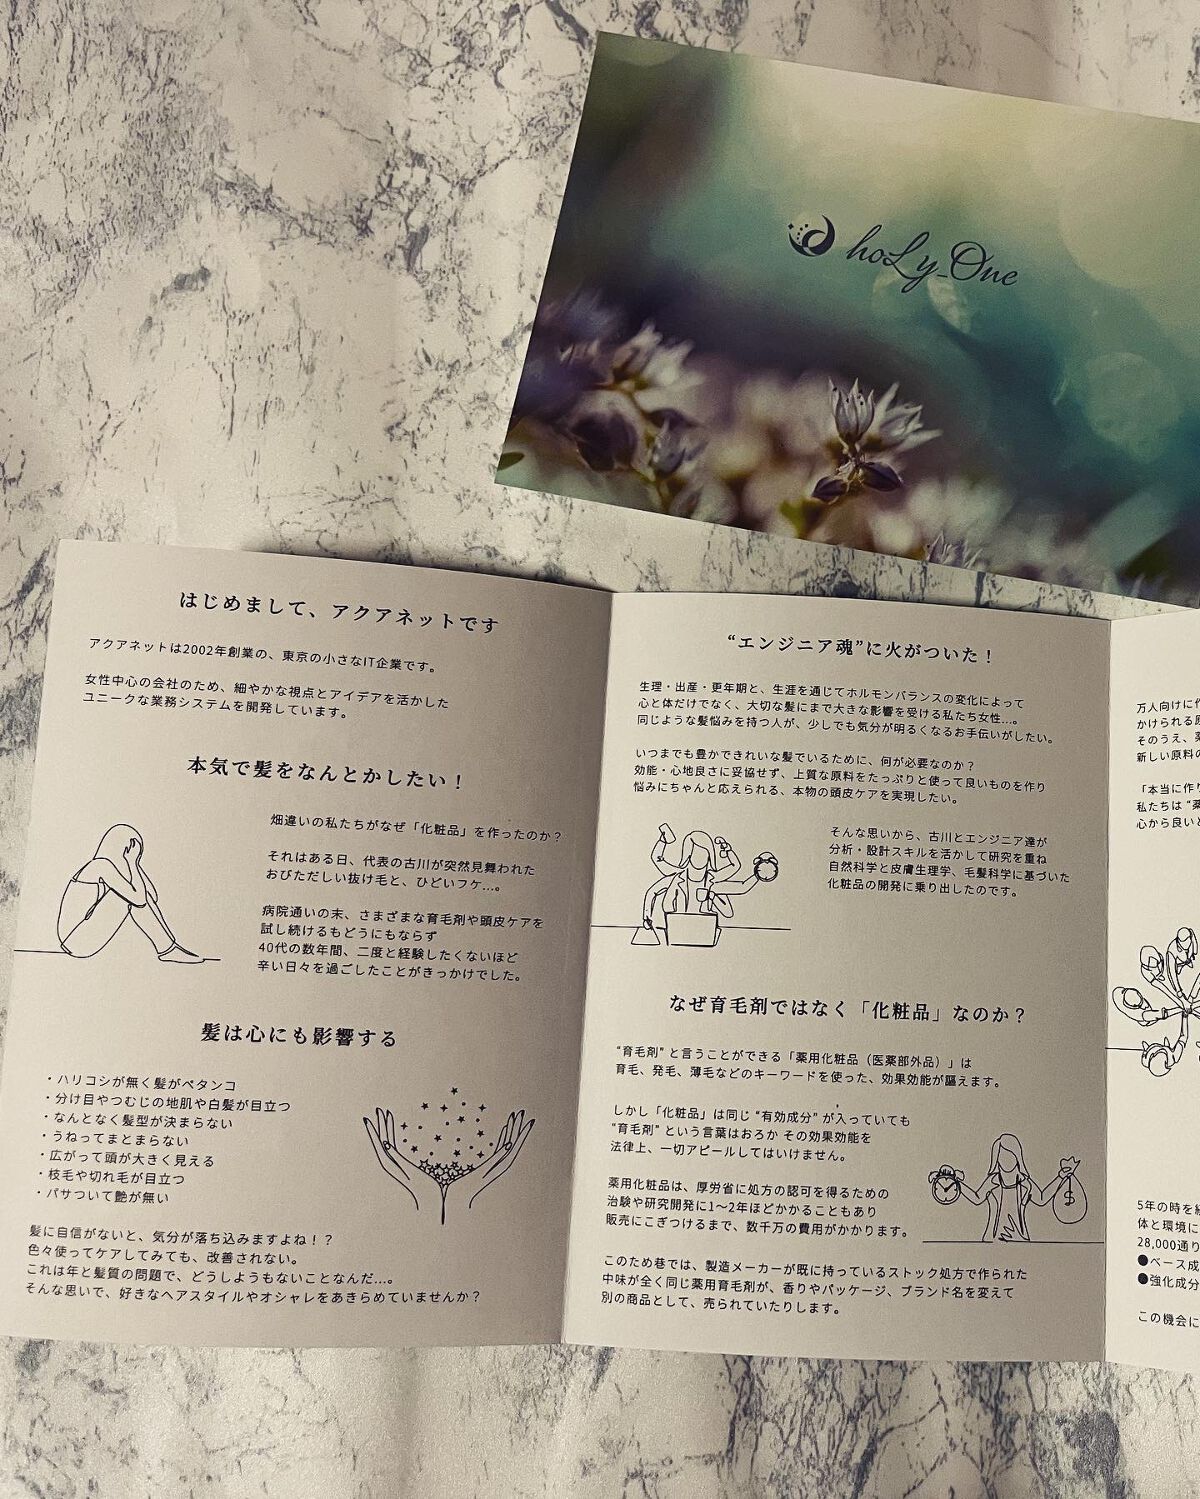 hoLy_One
はじめまして、アクアネットです
アクアネットは2002年創業の、東京の小さなIT企業です。
女性中心の会社のため、細やかな視点とアイデアを活かした
ユニークな業務システムを開発しています。
本気で髪をなんとかしたい！
畑違いの私たちがなぜ「化粧品」を作ったのか？
それはある日、代表の古川が突然見舞われた
おびただしい抜け毛と、ひどいフケ…。
病院通いの末、さまざまな育毛剤や頭皮ケアを
試し続けるもどうにもならず
40代の数年間、二度と経験したくないほど
辛い日々を過ごしたことがきっかけでした。
髪は心にも影響する
・ハリコシが無く髪がペタンコ
・分け目やつむじの地肌や白髪が目立つ
・なんとなく髪型が決まらない
・うねってまとまらない
・広がって頭が大きく見える
・枝毛や切れ毛が目立つ
・パサついて艶が無い
髪に自信がないと、気分が落ち込みますよね！？
色々使ってケアしてみても、改善されない。
これは年と髪質の問題で、どうしようもないことなんだ…。
そんな思いで、好きなヘアスタイルやオシャレをあきらめていませんか？
“エンジニア魂”に火がついた！
生理・出産・更年期と、生涯を通じてホルモンバランスの変化によって
心と体だけでなく、大切な髪にまで大きな影響を受ける私たち女性…。
同じような髪悩みを持つ人が、少しでも気分が明るくなるお手伝いがしたい。
いつまでも豊かできれいな髪でいるために、何が必要なのか？
効能・心地良さに妥協せず、上質な原料をたっぷりと使って良いものを作り
悩みにちゃんと応えられる、本物の頭皮ケアを実現したい。
そんな思いから、古川とエンジニア達が
分析・設計スキルを活かして研究を重ね
自然科学と皮膚生理学、毛髪科学に基づいた
化粧品の開発に乗り出したのです。
なぜ育毛剤ではなく「化粧品」なのか？
“育毛剤” と言うことができる「薬用化粧品（医薬部外品）」は
育毛、発毛、薄毛などのキーワードを使った、効果効能が謳えます。
しかし「化粧品」は同じ “有効成分” が入っていても
“育毛剤” という言葉はおろか その効果効能を
法律上、一切アピールしてはいけません。
薬用化粧品は、厚労省に処方の認可を得るための
治験や研究開発に1〜2年ほどかかることもあり
販売にこぎつけるまで、数千万の費用がかかります。
このため巷では、製造メーカーが既に持っているストック処方で作られた
中味が全く同じ薬用育毛剤が、香りやパッケージ、ブランド名を変えて
別の商品として、売られていたりします。
万人向けに作
かけられる原
そのうえ、薬
新しい原料の
「本当に作り
私たちは “薬
心から良いと
5年の時を経
体と環境に
28,000通り
●ベース成
●強化成分
この機会に